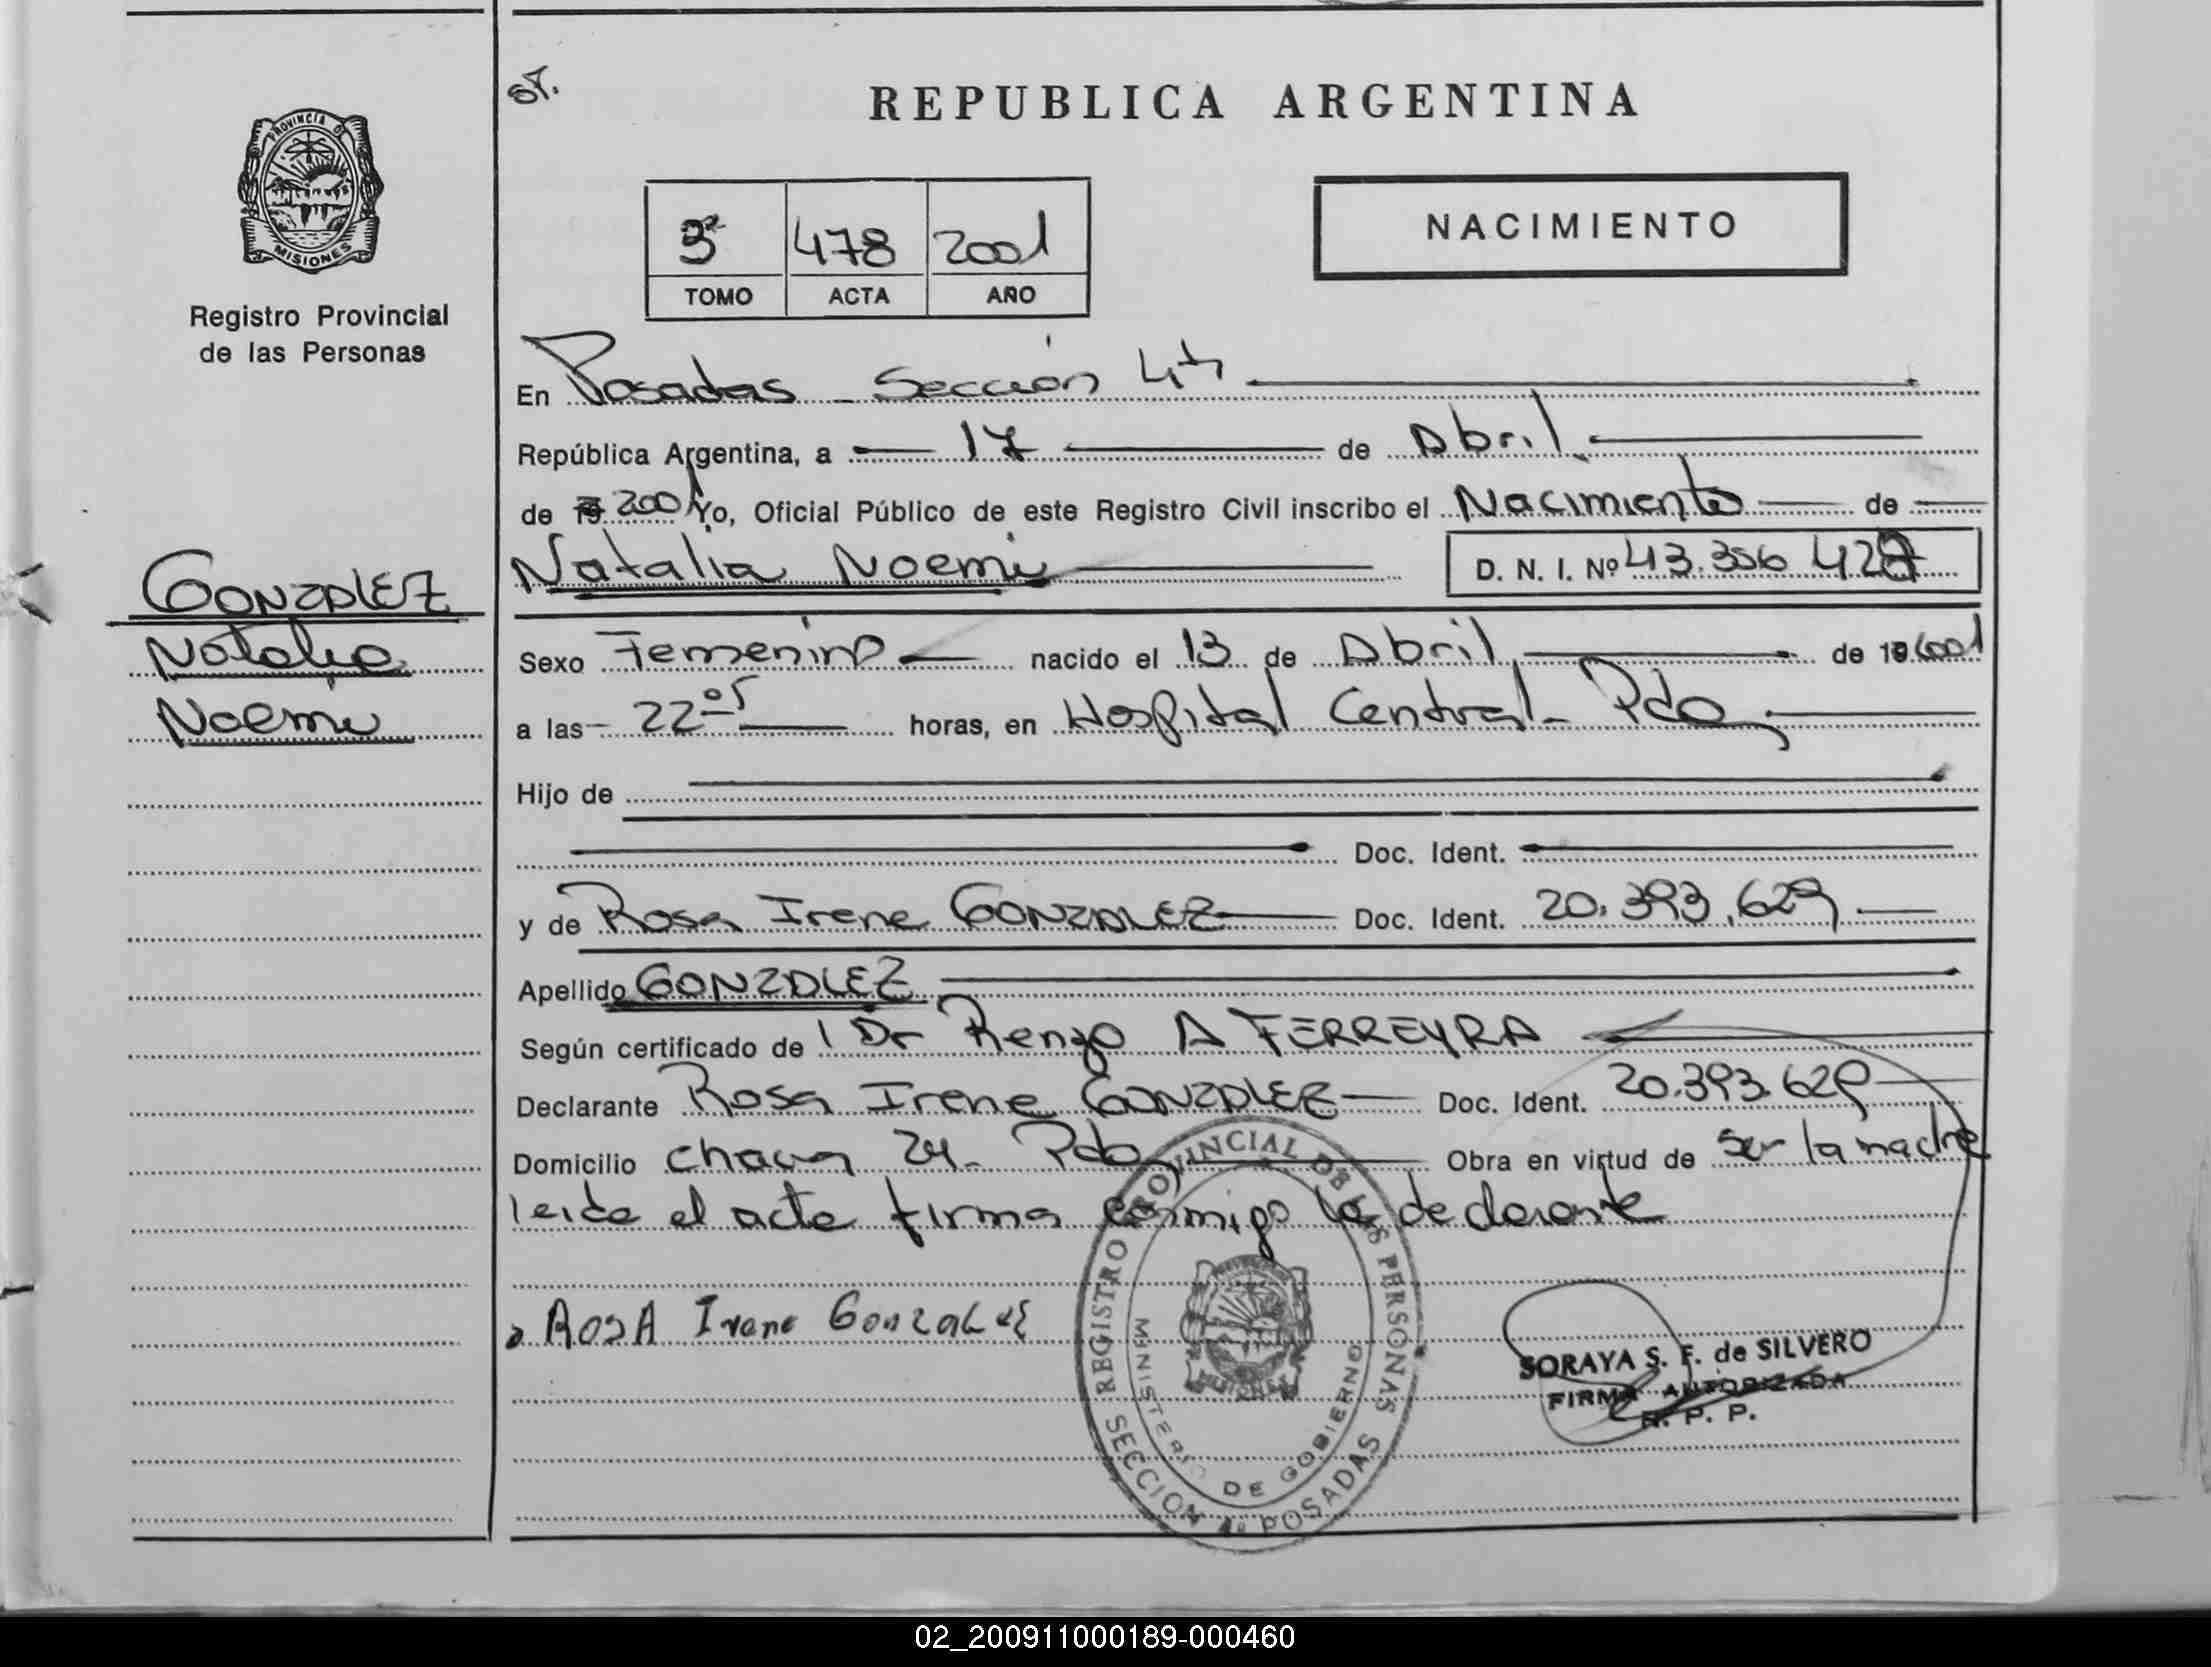 REPUBLICA ARGENTINA
PROVINCIA DE
MISIONES
Registro Provincial
de las Personas
3º 478 2001
TOMO ACTA AÑO
NACIMIENTO
En Posadas - Sección 4ta
República Argentina, a 17 de Abril
de 19 2001 Yo, Oficial Público de este Registro Civil inscribo el Nacimiento de
Natalia Noemi D. N. I. Nº 43.356
GONZALEZ
Natalia
Noemi
Sexo Femenino nacido el 13 de Abril de 2001
a las 22 05 horas, en Hospital Central - Pdas
Hijo de
Doc. Ident.
y de Rosa Irene GONZALEZ Doc. Ident. 20.393.629
Apellido GONZALEZ
Según certificado de Dr Renzo A FERREYRA
Declarante Rosa Irene GONZALEZ Doc. Ident. 20.393.629
Domicilio 24 - Pdas Obra en virtud de ser la madre
leida el acta firma conmigo la declarante
ROSA Irene Gonzalez
REGISTRO PROVINCIAL DE LAS PERSONAS
MINISTERIO DE GOBIERNO
SECCION 4º POSADAS
SORAYA S. F. de SILVERO
FIRMA AUTORIZADA
R. P. P.
02_200911000189-000460